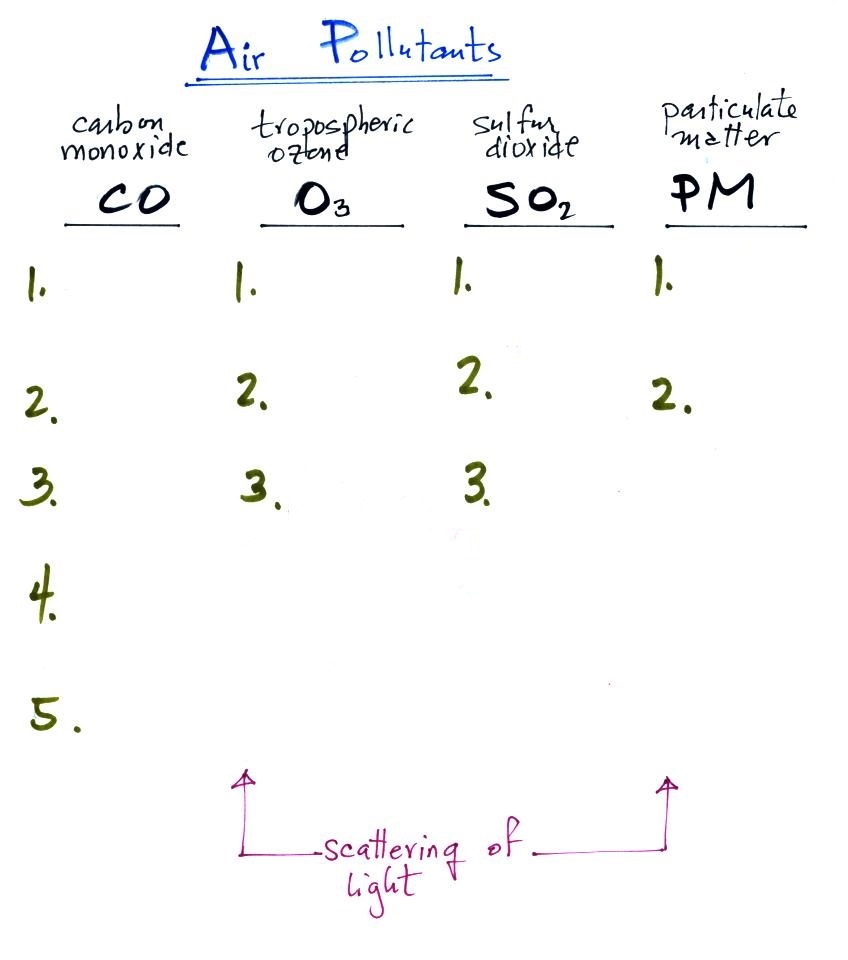 Air Pollutants
carbon monoxide
tropospheric ozone
sulfur dioxide
particulate matter
CO
O₃
SO₂
PM
1. 1. 1. 1.
2. 2. 2. 2.
3. 3. 3.
4.
5.
scattering of
light